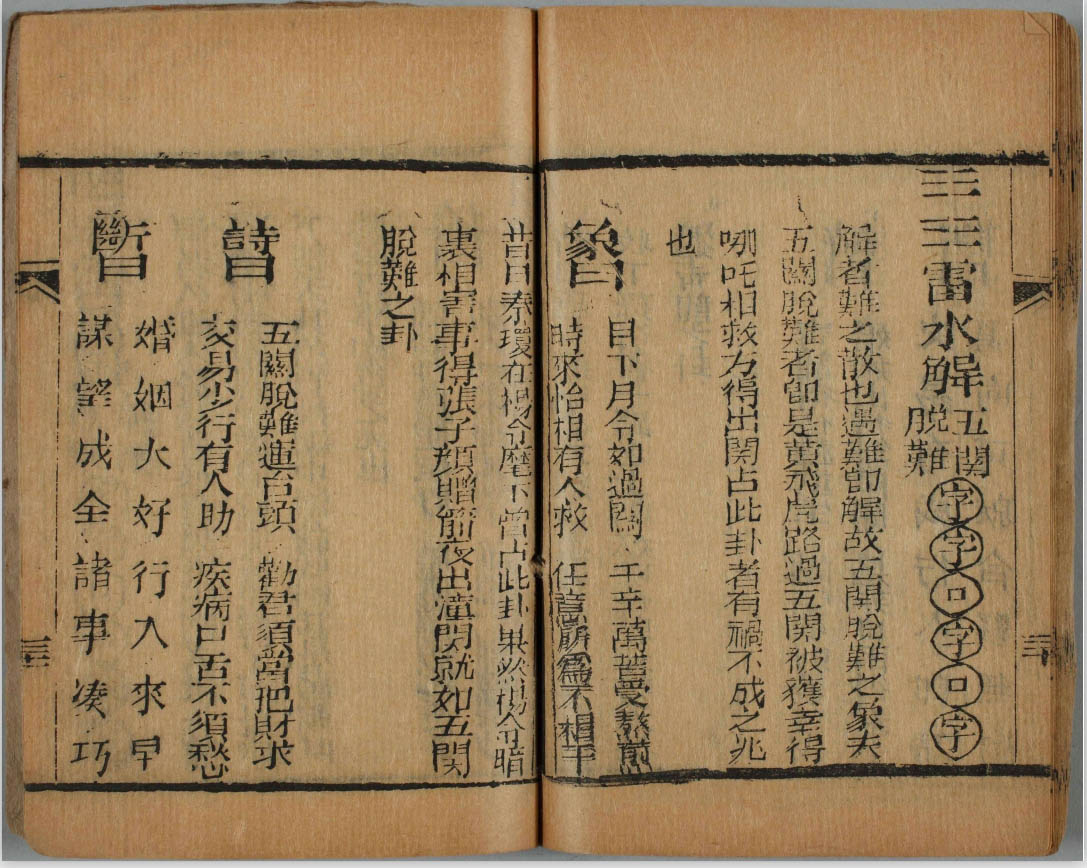 雷水解 五関脫難 字字口字口字
解者難之散也遇難即解故五関脫難之象夫
五關脫難者即是黃飛虎路過五関被獲幸得
哪吒相救方得出関占此卦者有禍不成之兆
也
象曰 目下月令如過關 千辛萬苦受熬煎
時來恰相有人救 任意所為不相干
昔日秦瓊在楊令麾下曾占此卦果然楊令暗
裏相害事得張子顏贈箭夜出潼関就如五関
脫難之卦
詩曰 五關脫難運台頭 勸君須當把財求
交易少行有人助 疾病口舌不須愁
斷曰 婚姻大好行人來早
謀望成全諸事湊巧
三十
三十一